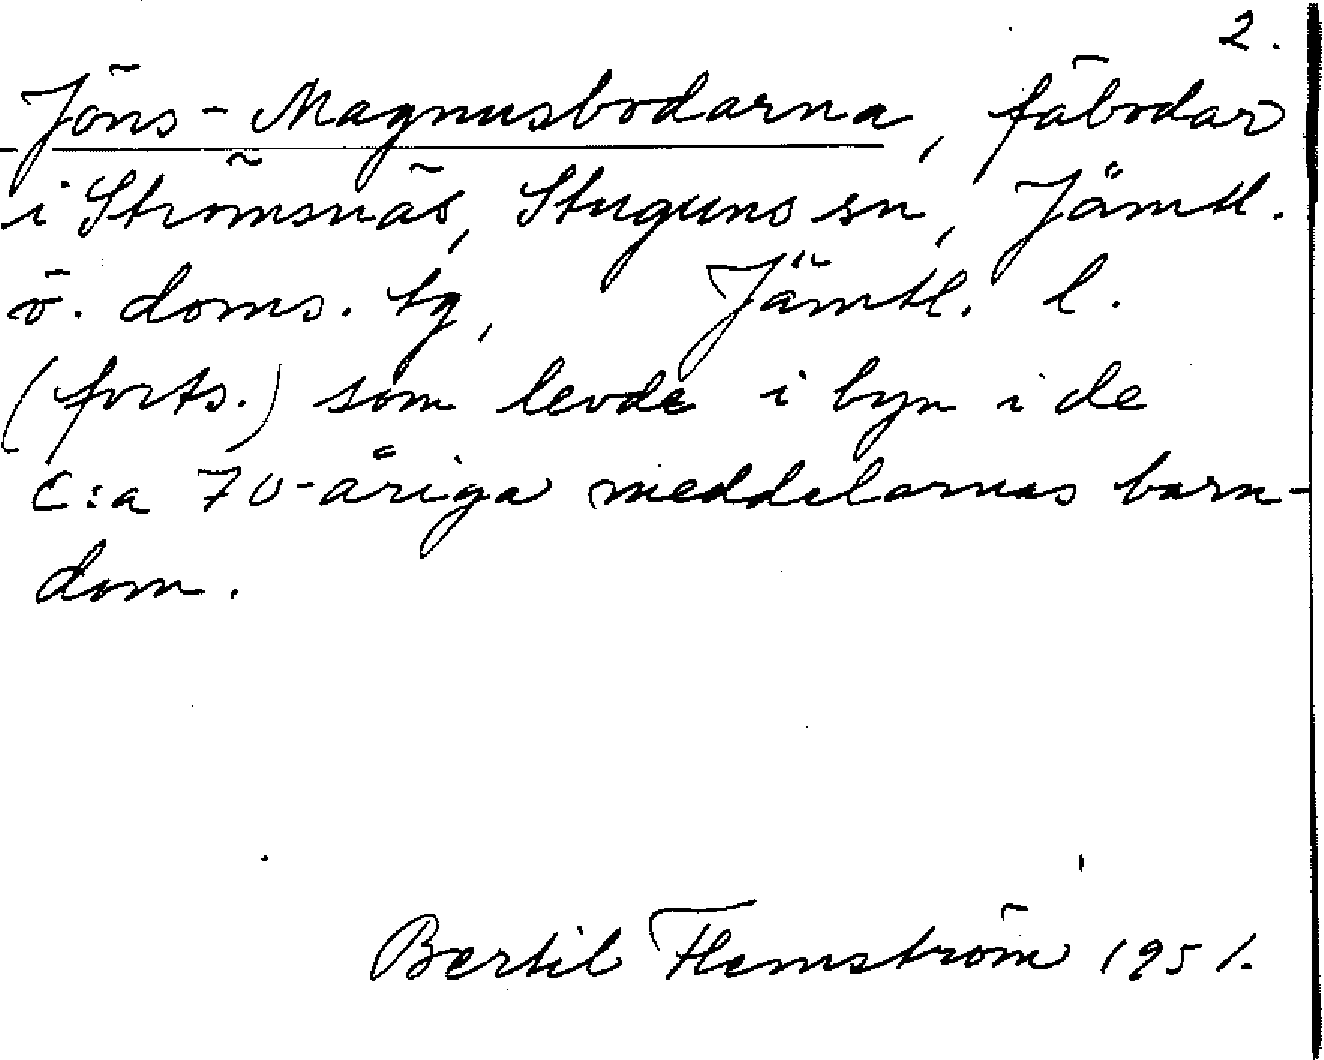 2.
Jöns-Magnusbodarna, fäbodar
i Strömsnäs, Stuguns sn, Jämtl.
ö. doms. tg, Jämtl. l.
(forts.) som levde i byn i de
c:a 70-åriga meddelarnas barn-
dom.
Bertil Flemström 1951.